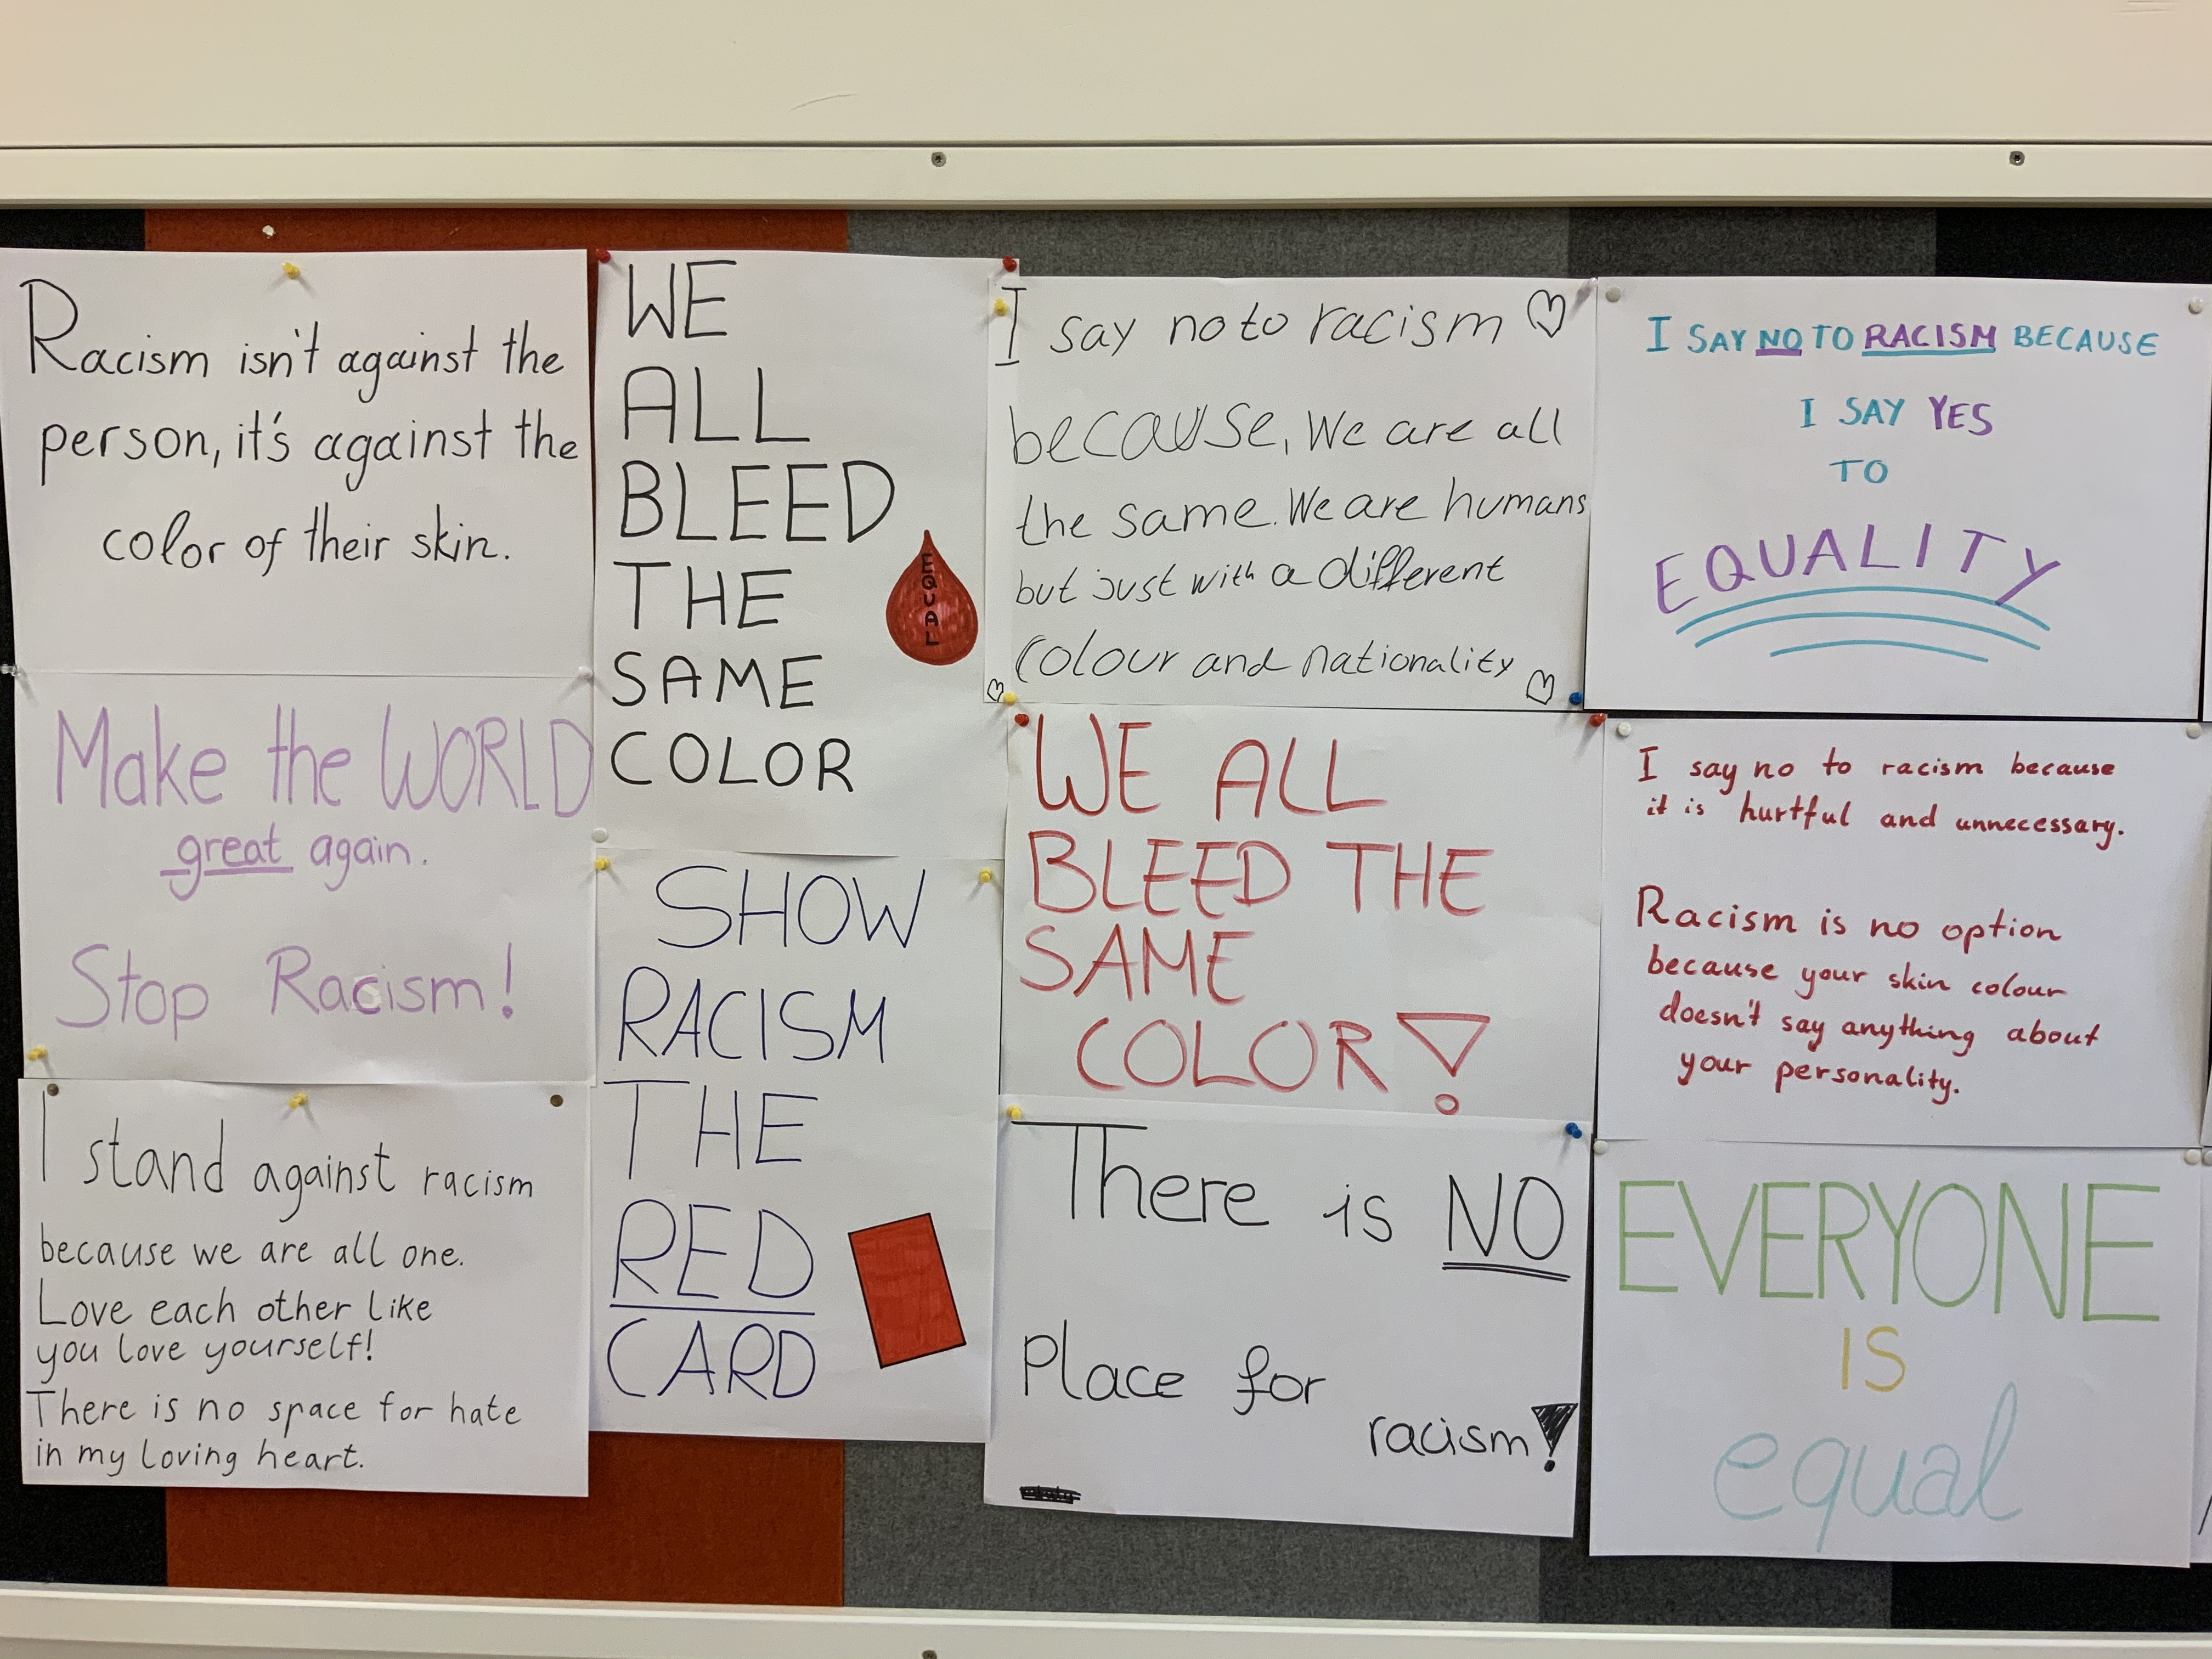 Racism isn't against the
person, it's against the
color of their skin.
Make the WORLD
great again.
Stop Racism!
I stand against racism
because we are all one.
Love each other like
you love yourself!
There is no space for hate
in my loving heart.
WE
ALL
BLEED
THE
SAME
COLOR
EQUAL
SHOW
RACISM
THE
RED
CARD
I say no to racism
because, We are all
the same. We are humans
but just with a different
colour and nationality
WE ALL
BLEED THE
SAME
COLOR!
There is NO
Place for
racism!
I SAY NO TO RACISM BECAUSE
I SAY YES
TO
EQUALITY
I say no to racism because
it is hurtful and unnecessary.
Racism is no option
because your skin colour
doesn't say anything about
your personality.
EVERYONE
IS
equal